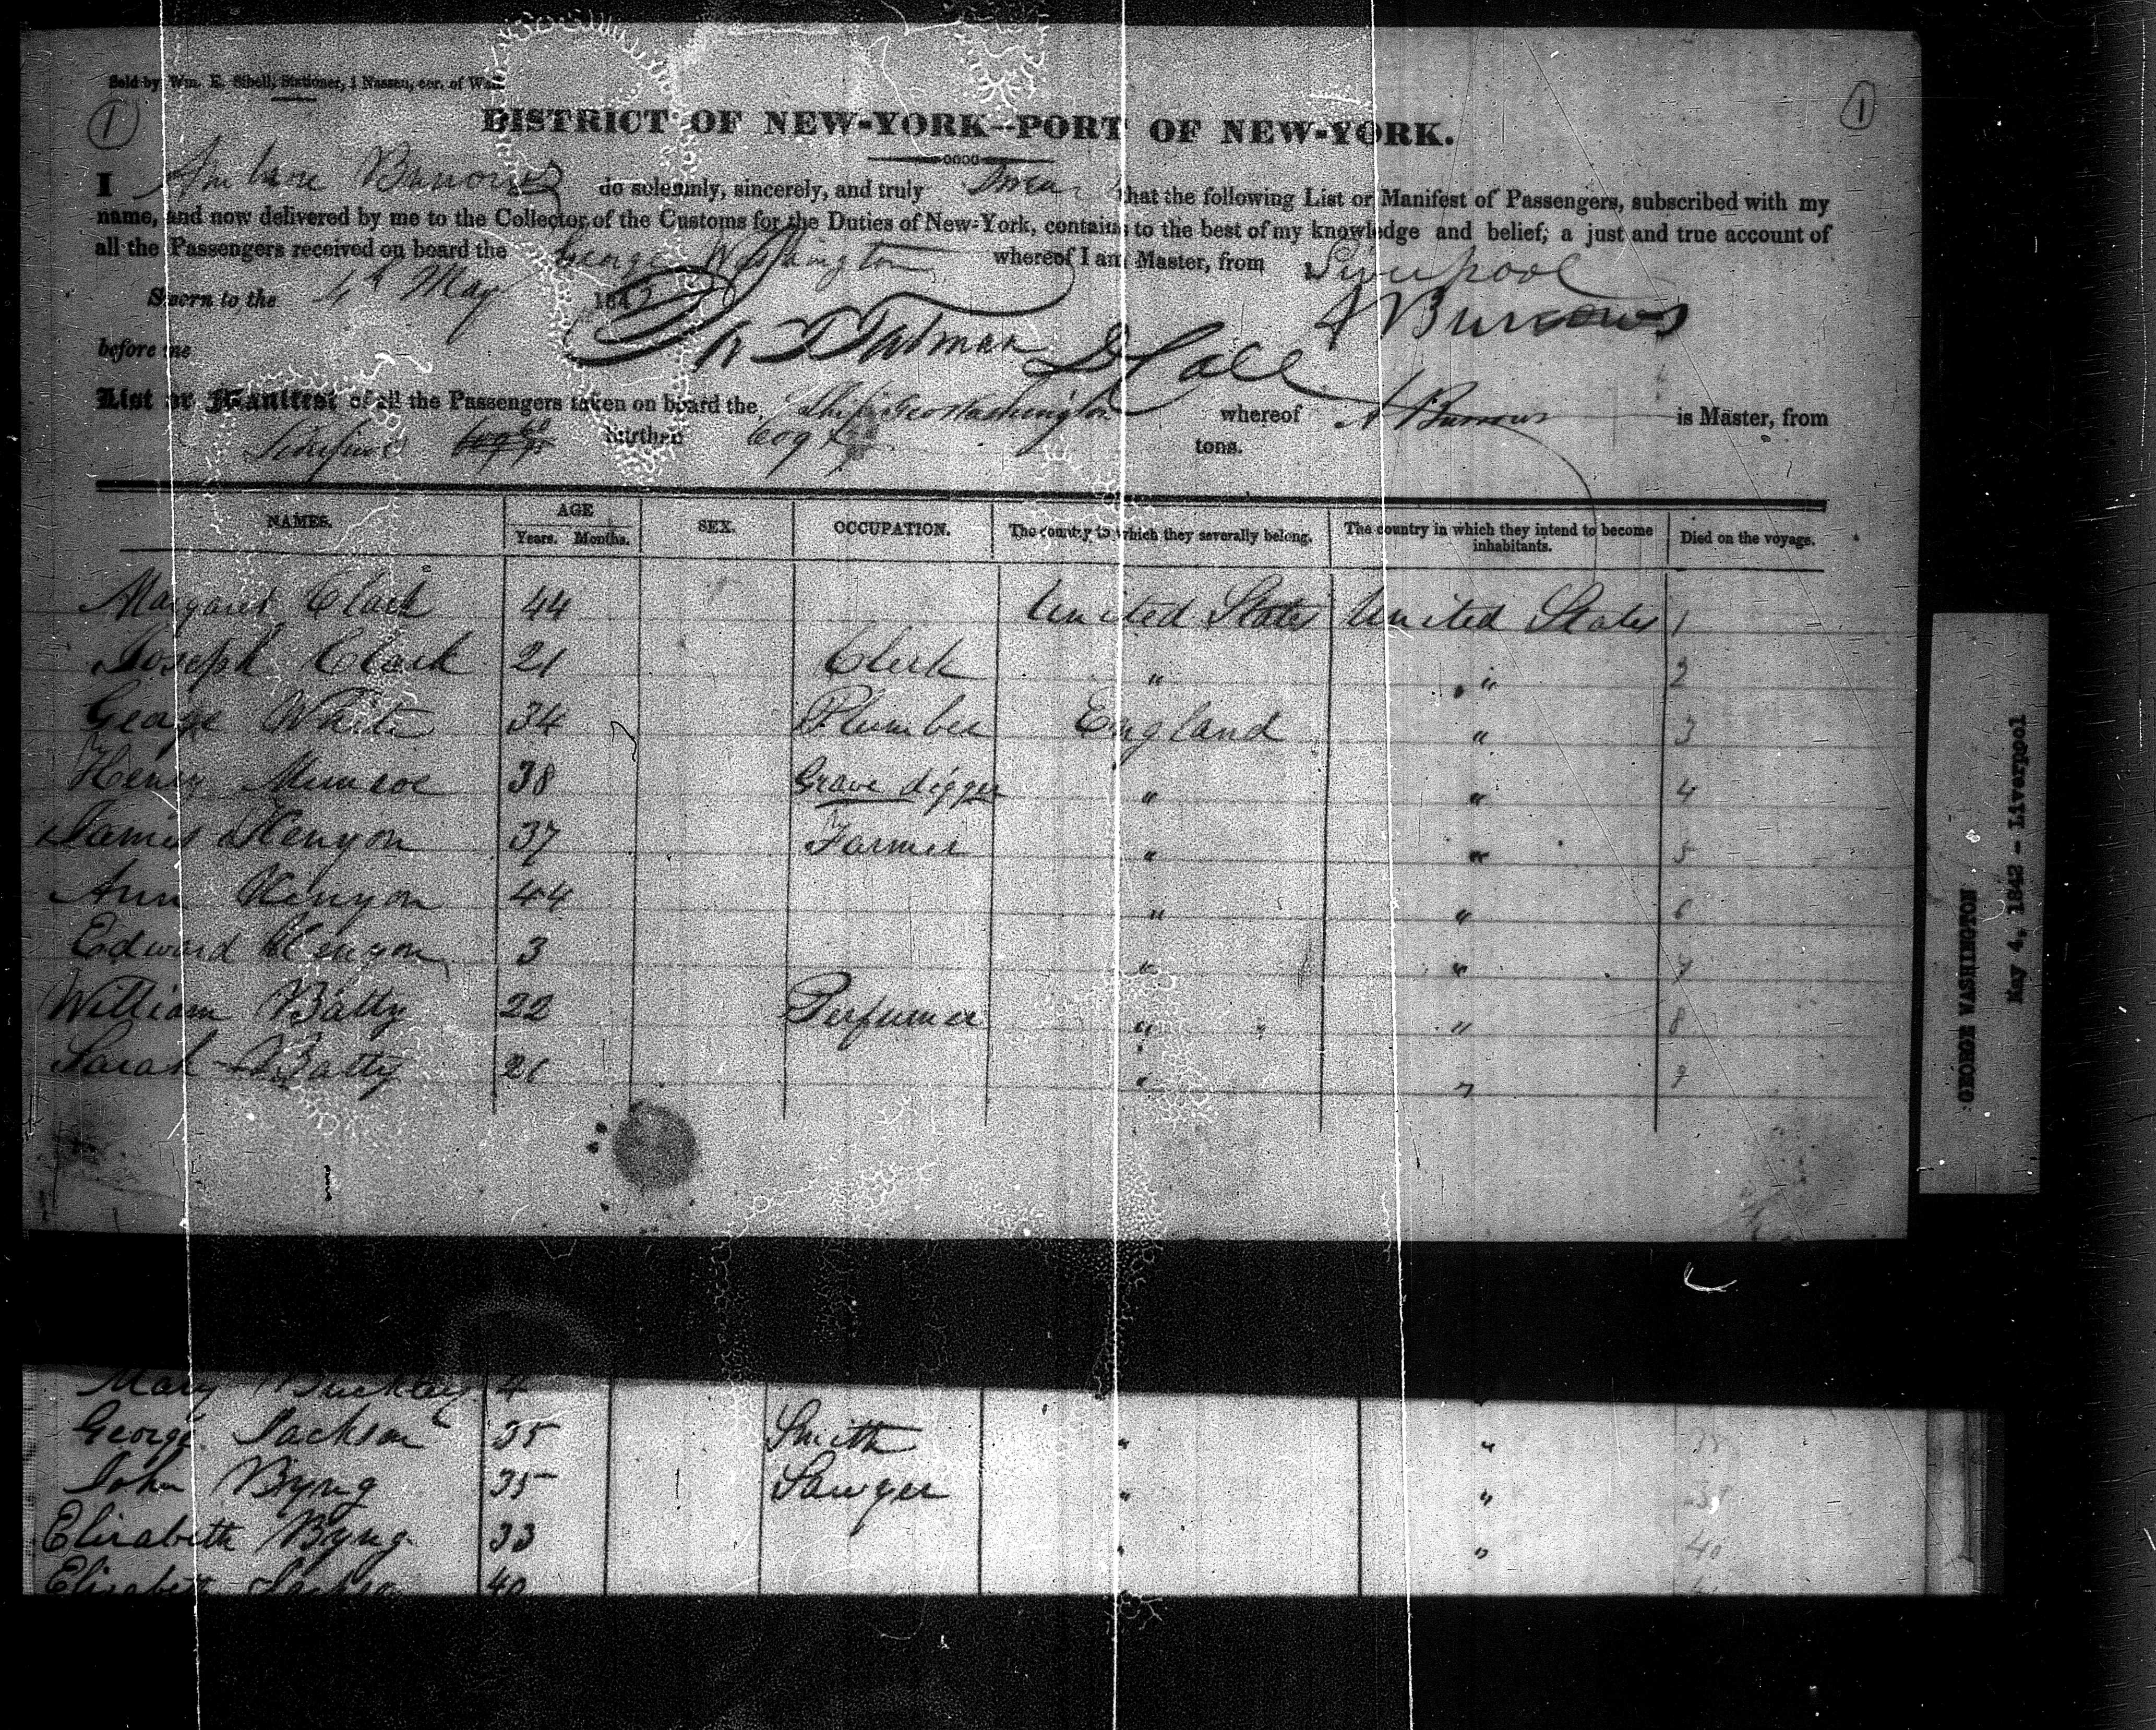 Sold by Wm. E. Sibell, Stationer, 1 Nassau, cor. of Wall
1
1
DISTRICT OF NEW-YORK--PORT OF NEW-YORK.
I Burrows do solemnly, sincerely, and truly Swear that the following List or Manifest of Passengers, subscribed with my
name, and now delivered by me to the Collector of the Customs for the Duties of New-York, contains to the best of my knowledge and belief, a just and true account of
all the Passengers received on board the George Washington whereof I am Master, from Liverpool
Sworn to the 4th May 1842 A Burrows
before me
List or Manifest of all the Passengers taken on board the, Ship Geo Washington whereof A Burrows is Master, from
burthen 609 tons.
NAMES. AGE SEX. OCCUPATION. The country to which they severally belong. The country in which they intend to become inhabitants. Died on the voyage.
Years. Months.
Margaret Clark 44 United States United States 1
Joseph Clark 21 Clerk " " 2
George White 34 Plumber England " 3
Henry Munroe 38 Grave digger " " 4
James Kenyon 37 Farmer " " 5
Ann Kenyon 44 " " 6
Edward Kenyon 3 " " 7
William Batty 22 Perfumer " " " 8
Sarah Batty 21 " " 9
GEORGE WASHINGTON
May 4, 1842 - Liverpool
Mary Buckley 4
George Jackson 35 Smith " " 38
John Byng 35 Sawyer " " 39
Elizabeth Byng 33 " " 40
Elizabeth Jackson 40 "